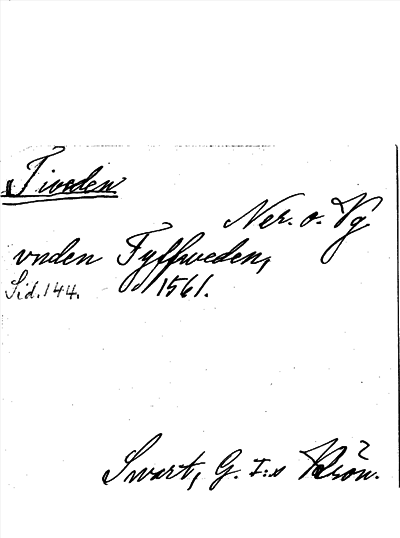 Tiveden
Ner. o. Vg
vnden Tyffweden,
Sid. 144. 1561.
Swart, G. I:s Krön.